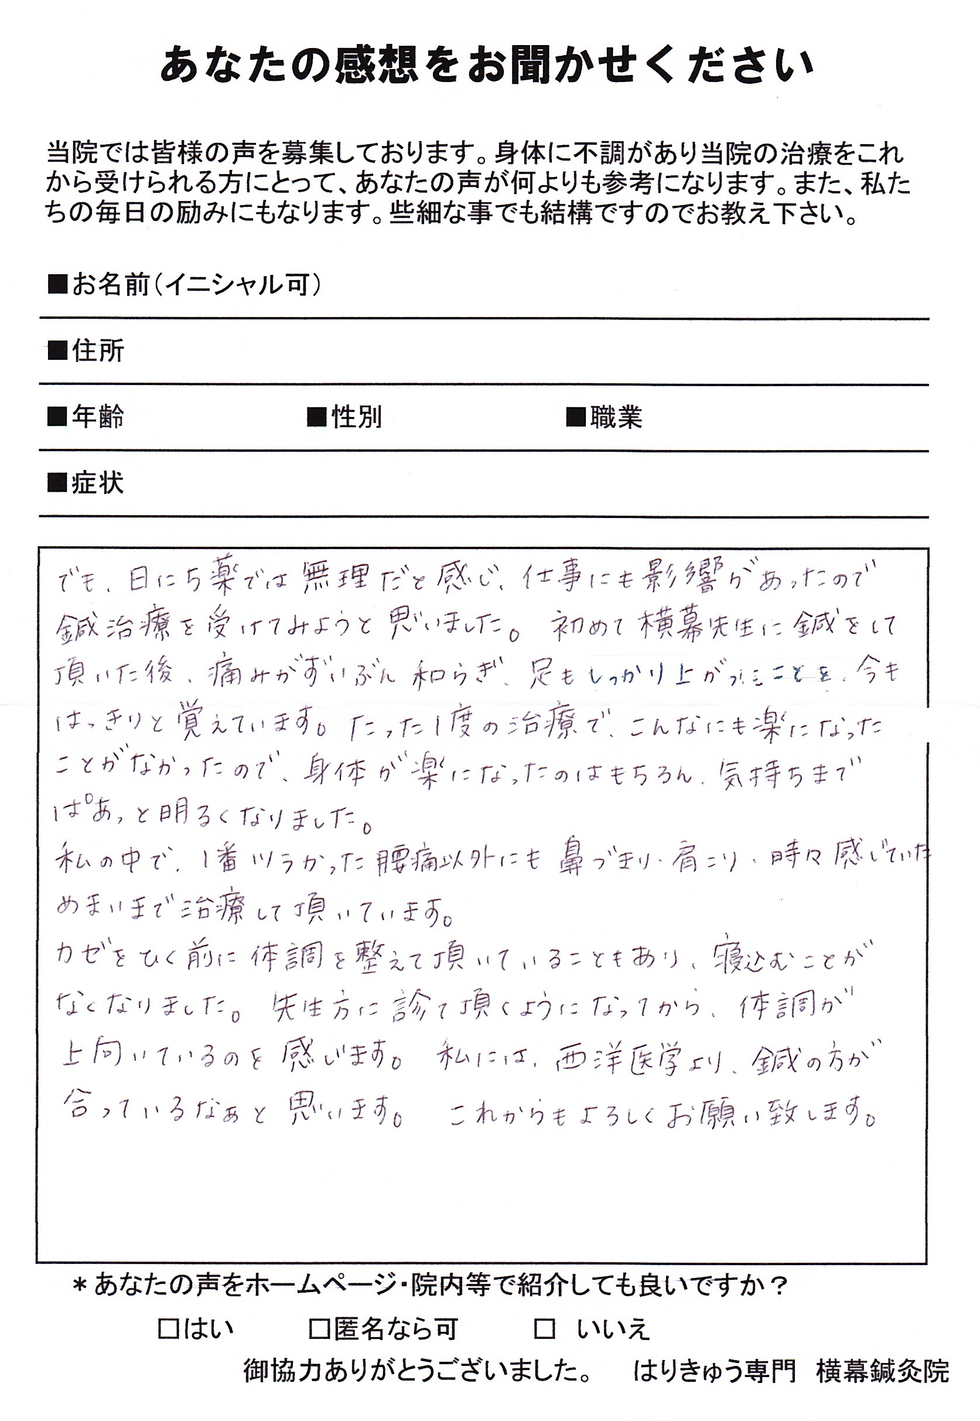 あなたの感想をお聞かせください
当院では皆様の声を募集しております。身体に不調があり当院の治療をこれ
から受けられる方にとって、あなたの声が何よりも参考になります。また、私た
ちの毎日の励みにもなります。些細な事でも結構ですのでお教え下さい。
■お名前(イニシャル可)
■住所
■年齢 ■性別 ■職業
■症状
でも、日にち薬では無理だと感じ、仕事にも影響があったので
鍼治療を受けてみようと思いました。 初めて横幕先生に鍼をして
頂いた後、痛みがずいぶん和らぎ、足もしっかり上がったことを、今も
はっきりと覚えています。たった1度の治療で、こんなにも楽になった
ことがなかったので、身体が楽になったのはもちろん、気持ちまで
ぱぁっと明るくなりました。
私の中で、1番ツラかった腰痛以外にも鼻づまり・肩こり・時々感じていた
めまいまで治療して頂いています。
カゼをひく前に体調を整えて頂いていることもあり、寝込むことが
なくなりました。 先生方に診て頂くようになってから、体調が
上向いているのを感じます。 私には、西洋医学より、鍼の方が
合っているなぁと思います。 これからもよろしくお願い致します。
*あなたの声をホームページ・院内等で紹介しても良いですか?
□はい □匿名なら可 □ いいえ
御協力ありがとうございました。 はりきゅう専門 横幕鍼灸院